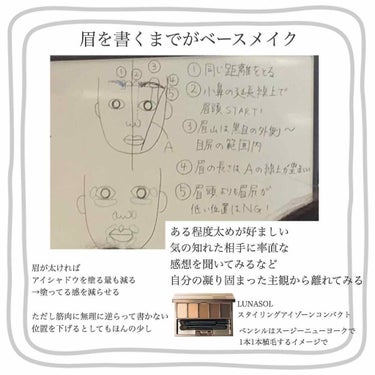 眉を書くまでがベースメイク
① ② ③
④
⑤
A
①同じ距離をとる
②小鼻の延長線上で
眉頭START!
③眉山は黒目の外側〜
目尻の範囲内
④眉の長さはAの線上が望ましい
⑤眉頭よりも眉尻が
低い位置はNG!
ある程度太めが好ましい
気の知れた相手に率直な
感想を聞いてみるなど
自分の凝り固まった主観から離れてみる
眉が太ければ
アイシャドウを塗る量も減る
→塗ってる感を減らせる
ただし筋肉に無理に逆らって書かない
位置を下げるとしてもほんの少し
LUNASOL
スタイリングアイゾーンコンパクト
ペンシルはスージーニューヨークで
1本1本植毛するイメージで